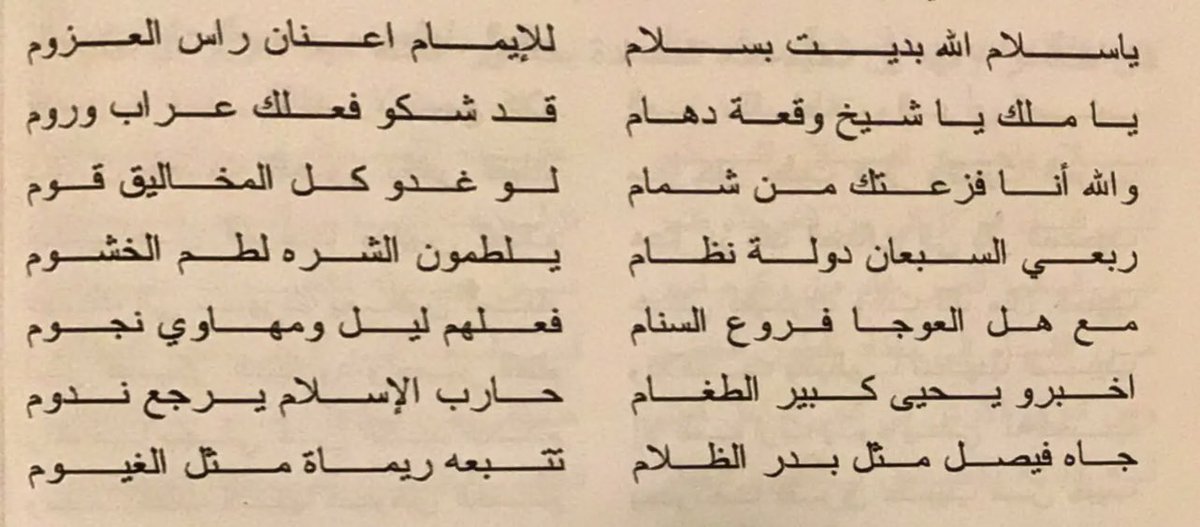 ياسلام الله بديت بسلام للإيمام اعنان راس العزوم
يا ملك يا شيخ وقعة دهام قد شكو فعلك عراب وروم
والله أنا فزعتك من شمام لو غدو كل المخاليق قوم
ربعي السبعان دولة نظام يلطمون الشره لطم الخشوم
مع هل العوجا فروع السنام فعلهم ليل ومهاوي نجوم
اخبرو يحيى كبير الطغام حارب الإسلام يرجع ندوم
جاه فيصل مثل بدر الظلام تتبعه ريماة مثل الغيوم